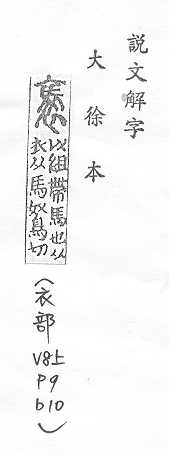 説文解字
大徐本
褭
以組帶馬也从
衣从馬奴鳥切
(衣部
V8上
P9
b10)